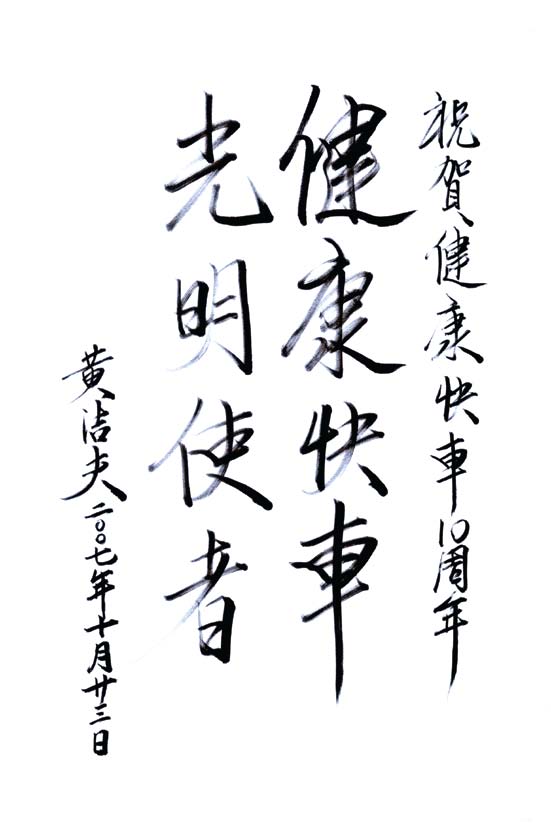 祝賀健康快車10周年
健康快車
光明使者
黄洁夫二〇〇七年十月廿三日